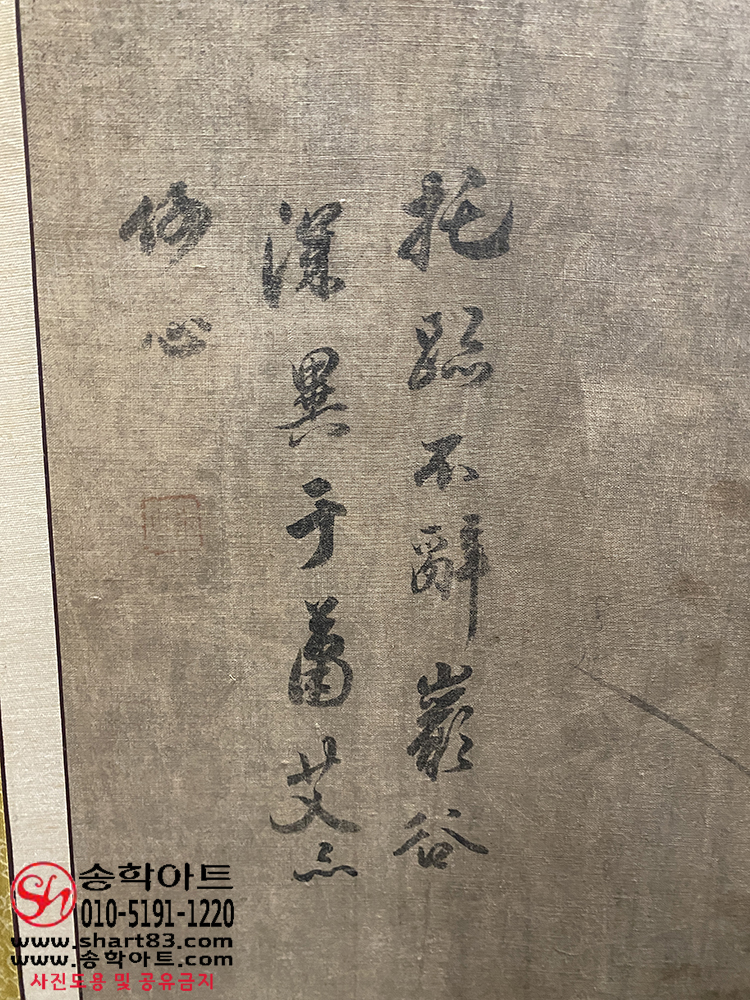 托跡不辭巖谷
深異于蕭艾亦
何心
Sh 송학아트
010-5191-1220
www.shart83.com
www.송학아트.com
사진도용 및 공유금지